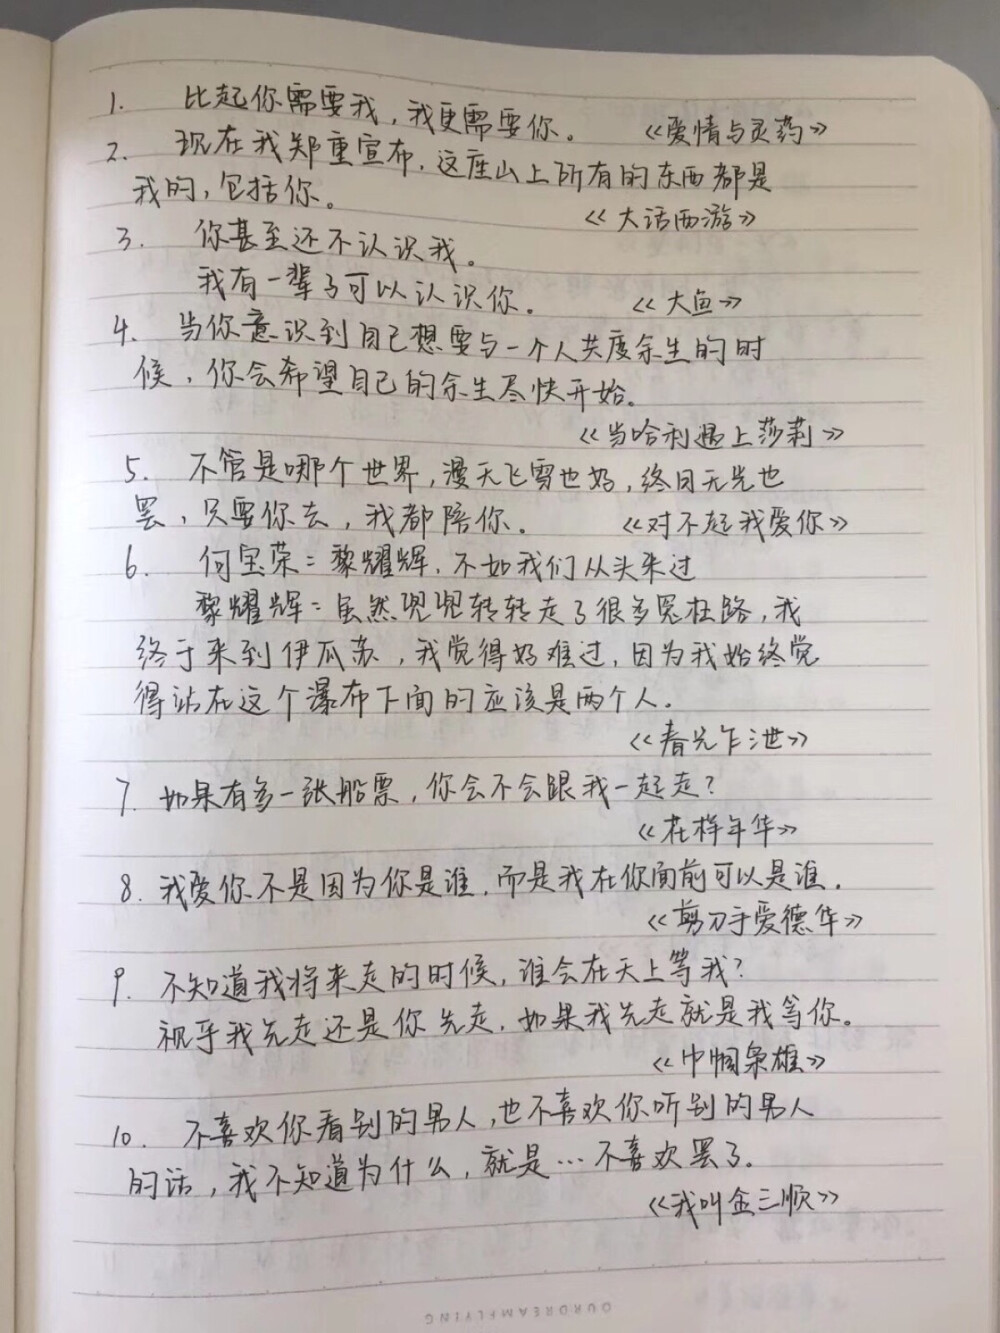 1. 比起你需要我，我更需要你。 《爱情与灵药》
2. 现在我郑重宣布，这座山上所有的东西都是
我的，包括你。
《大话西游》
3. 你甚至还不认识我。
我有一辈子可以认识你。 《大鱼》
4. 当你意识到自己想要与一个人共度余生的时
候，你会希望自己的余生尽快开始。
《当哈利遇上莎莉》
5. 不管是哪个世界，漫天飞雪也好，终日无光也
罢，只要你去，我都陪你。 《对不起我爱你》
6. 何宝荣：黎耀辉，不如我们从头来过
黎耀辉：虽然兜兜转转走了很多冤枉路，我
终于来到伊瓜苏，我觉得好难过，因为我始终觉
得站在这个瀑布下面的应该是两个人。
《春光乍泄》
7. 如果有多一张船票，你会不会跟我一起走？
《花样年华》
8. 我爱你不是因为你是谁，而是我在你面前可以是谁。
《剪刀手爱德华》
9. 不知道我将来走的时候，谁会在天上等我？
视乎我先走还是你先走，如果我先走就是我等你。
《巾帼枭雄》
10. 不喜欢你看别的男人，也不喜欢你听别的男人
的话，我不知道为什么，就是…不喜欢罢了。
《我叫金三顺》
OURDREAMFLYING